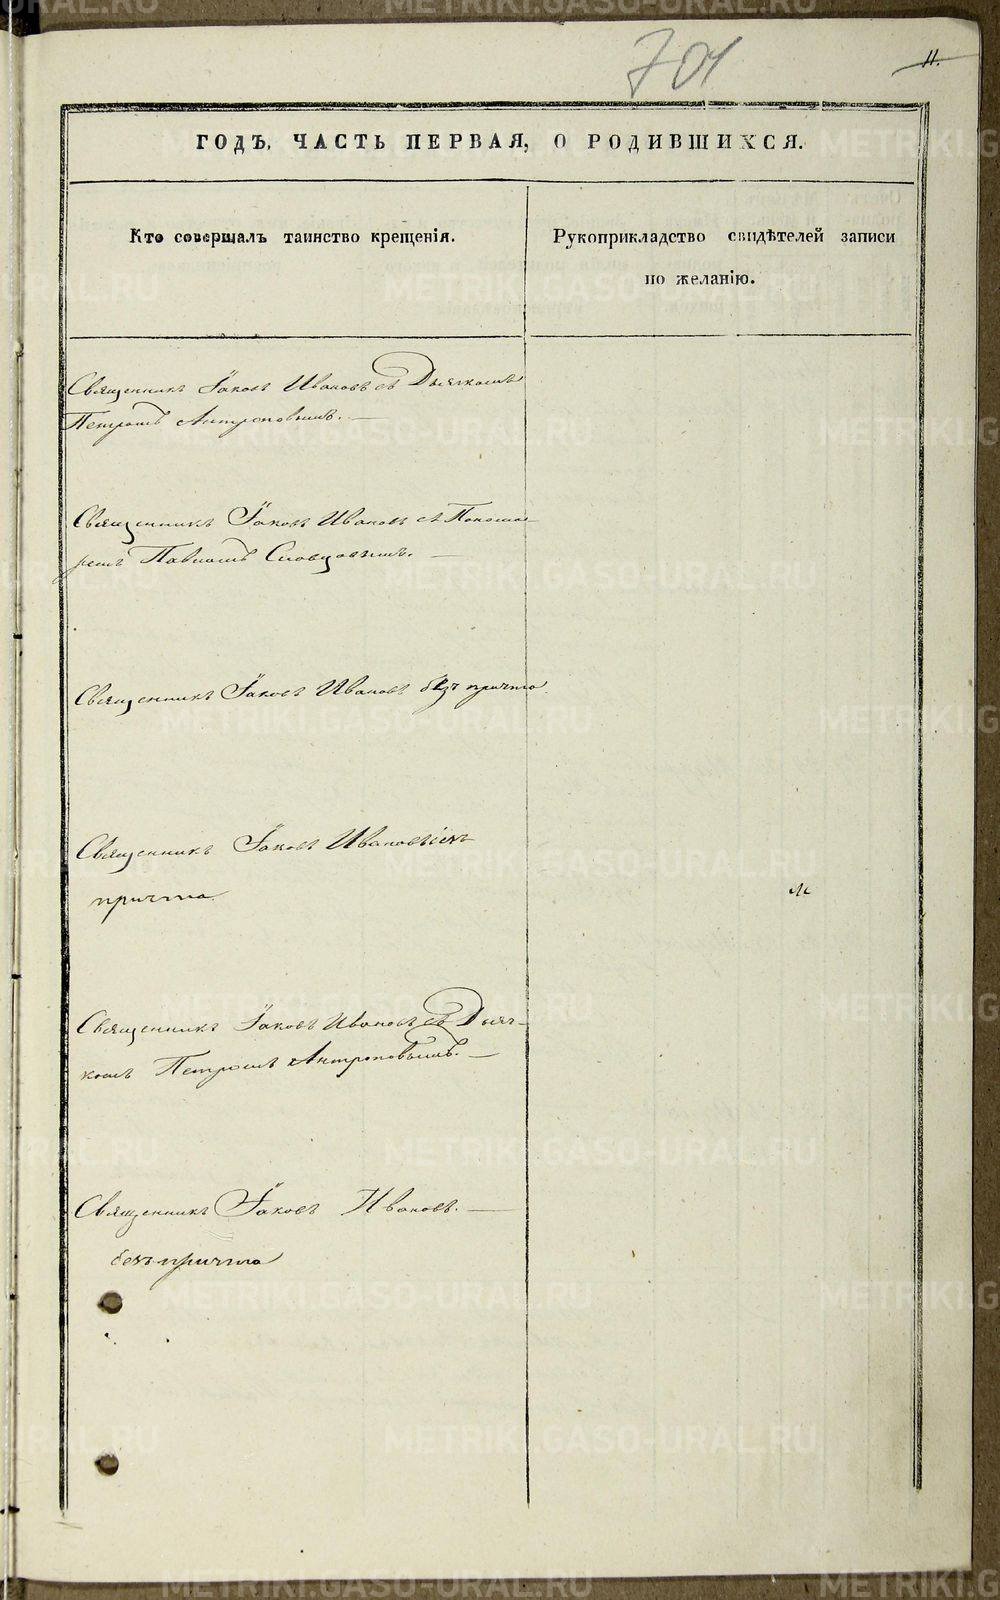 701
11.
ГОДЪ, ЧАСТЬ ПЕРВАЯ, О РОДИВШИХСЯ.
Кто совершалъ таинство крещенія.
Рукоприкладство свидѣтелей записи
по желанію.
Священникъ Іаковъ Ивановъ съ Дьячкомъ
Петромъ Антроповымъ.
Священникъ Іаковъ Ивановъ съ Понома-
ремъ Павломъ Словцовымъ.
Священникъ Іаковъ Ивановъ безъ причта
Священникъ Іаковъ Ивановъ безъ
причта
Священникъ Іаковъ Ивановъ съ Дьяч-
комъ Петромъ Антроповымъ.
Священникъ Іаковъ Ивановъ.
безъ причта
METRIKI.GASO-URAL.RU